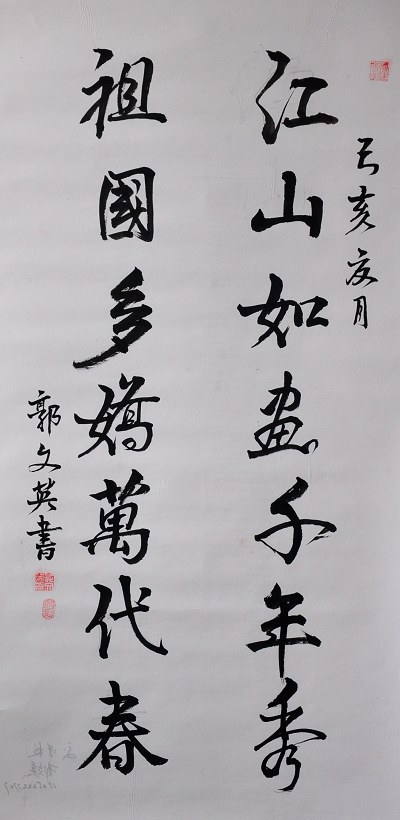 己亥夏月
江山如画千年秀
祖國多嬌萬代春
郭文英書